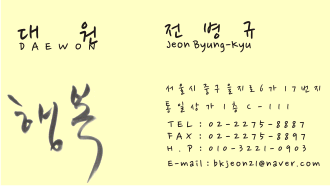 대 원
DAEWON
전 병 규
Jeon Byung-kyu
행복
서울시중구을지로6가17번지
통일상가1층C-111
TEL : 02-2275-8887
FAX : 02-2275-8897
H.P : 010-3221-0903
E-mail : bkjeon21@naver.com